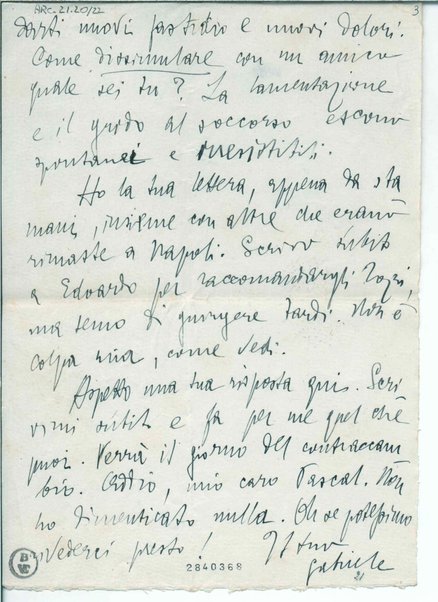 ARC-21.20/22
3
darti nuovi fastidii e nuovi dolori.
Come dissimulare con un amico
quale sei tu? La lamentazione
e il grido al soccorso escono
spontanei e irresistibili.
Ho la tua lettera, appena da sta
mani, insieme con altre che erano
rimaste a Napoli. Scrivo subito
a Edoardo per raccomandargli
ma temo di giungere tardi. Non è
colpa mia, come vedi.
Aspetto una tua risposta qui. Scri
vimi subito e fa per me quel che
puoi. Verrà il giorno del contraccam
bio. Addio, mio caro Pascal. Non
ho dimenticato nulla. Oh se potessimo
rivederci presto! Il tuo
Gabriele
2840368
21